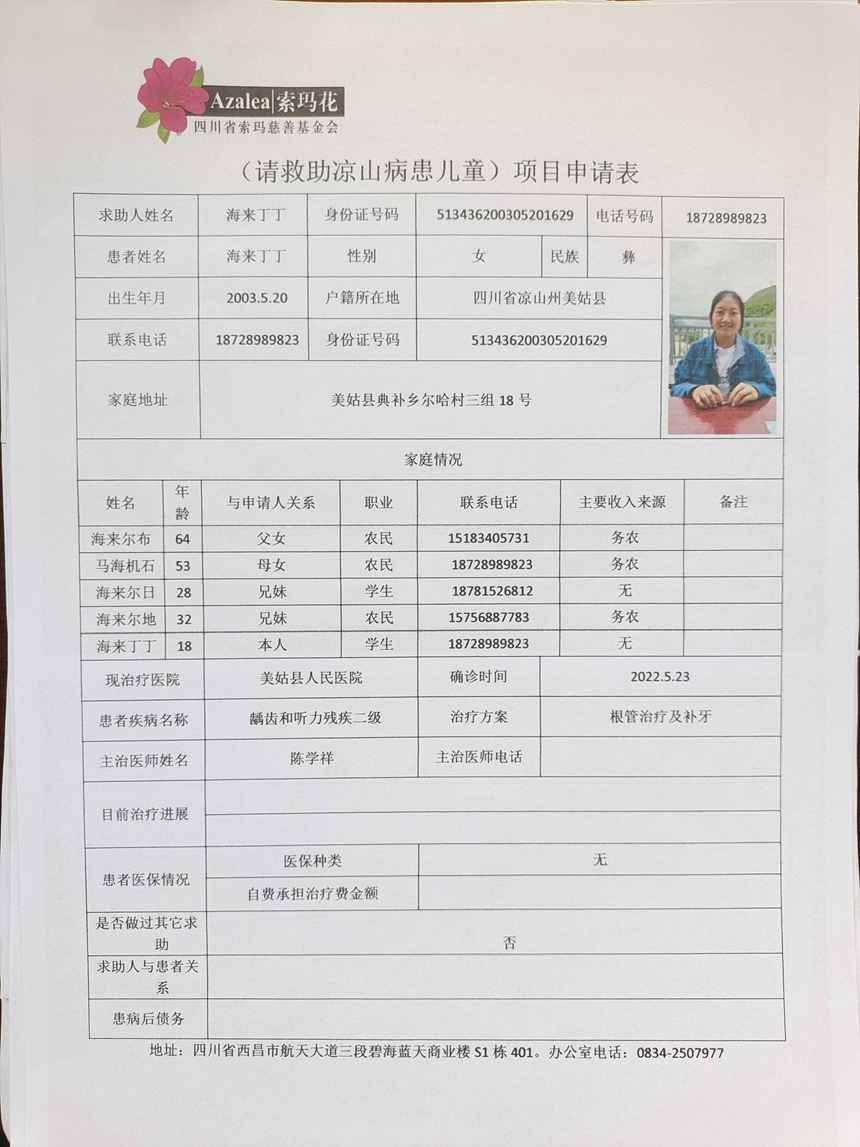 Azalea|索玛花
四川省索玛慈善基金会
（请救助凉山病患儿童）项目申请表
求助人姓名 海来丁丁 身份证号码 513436200305201629 电话号码 18728989823
患者姓名 海来丁丁 性别 女 民族 彝
出生年月 2003.5.20 户籍所在地 四川省凉山州美姑县
联系电话 18728989823 身份证号码 513436200305201629
家庭地址 美姑县典补乡尔哈村三组 18 号
家庭情况
姓名 年龄 与申请人关系 职业 联系电话 主要收入来源 备注
海来尔布 64 父女 农民 15183405731 务农
马海机石 53 母女 农民 18728989823 务农
海来尔日 28 兄妹 学生 18781526812 无
海来尔地 32 兄妹 农民 15756887783 务农
海来丁丁 18 本人 学生 18728989823 无
现治疗医院 美姑县人民医院 确诊时间 2022.5.23
患者疾病名称 龋齿和听力残疾二级 治疗方案 根管治疗及补牙
主治医师姓名 陈学祥 主治医师电话
目前治疗进展
患者医保情况 医保种类 无
自费承担治疗费金额
是否做过其它求助 否
求助人与患者关系
患病后债务
地址：四川省西昌市航天大道三段碧海蓝天商业楼 S1 栋 401。办公室电话：0834-2507977